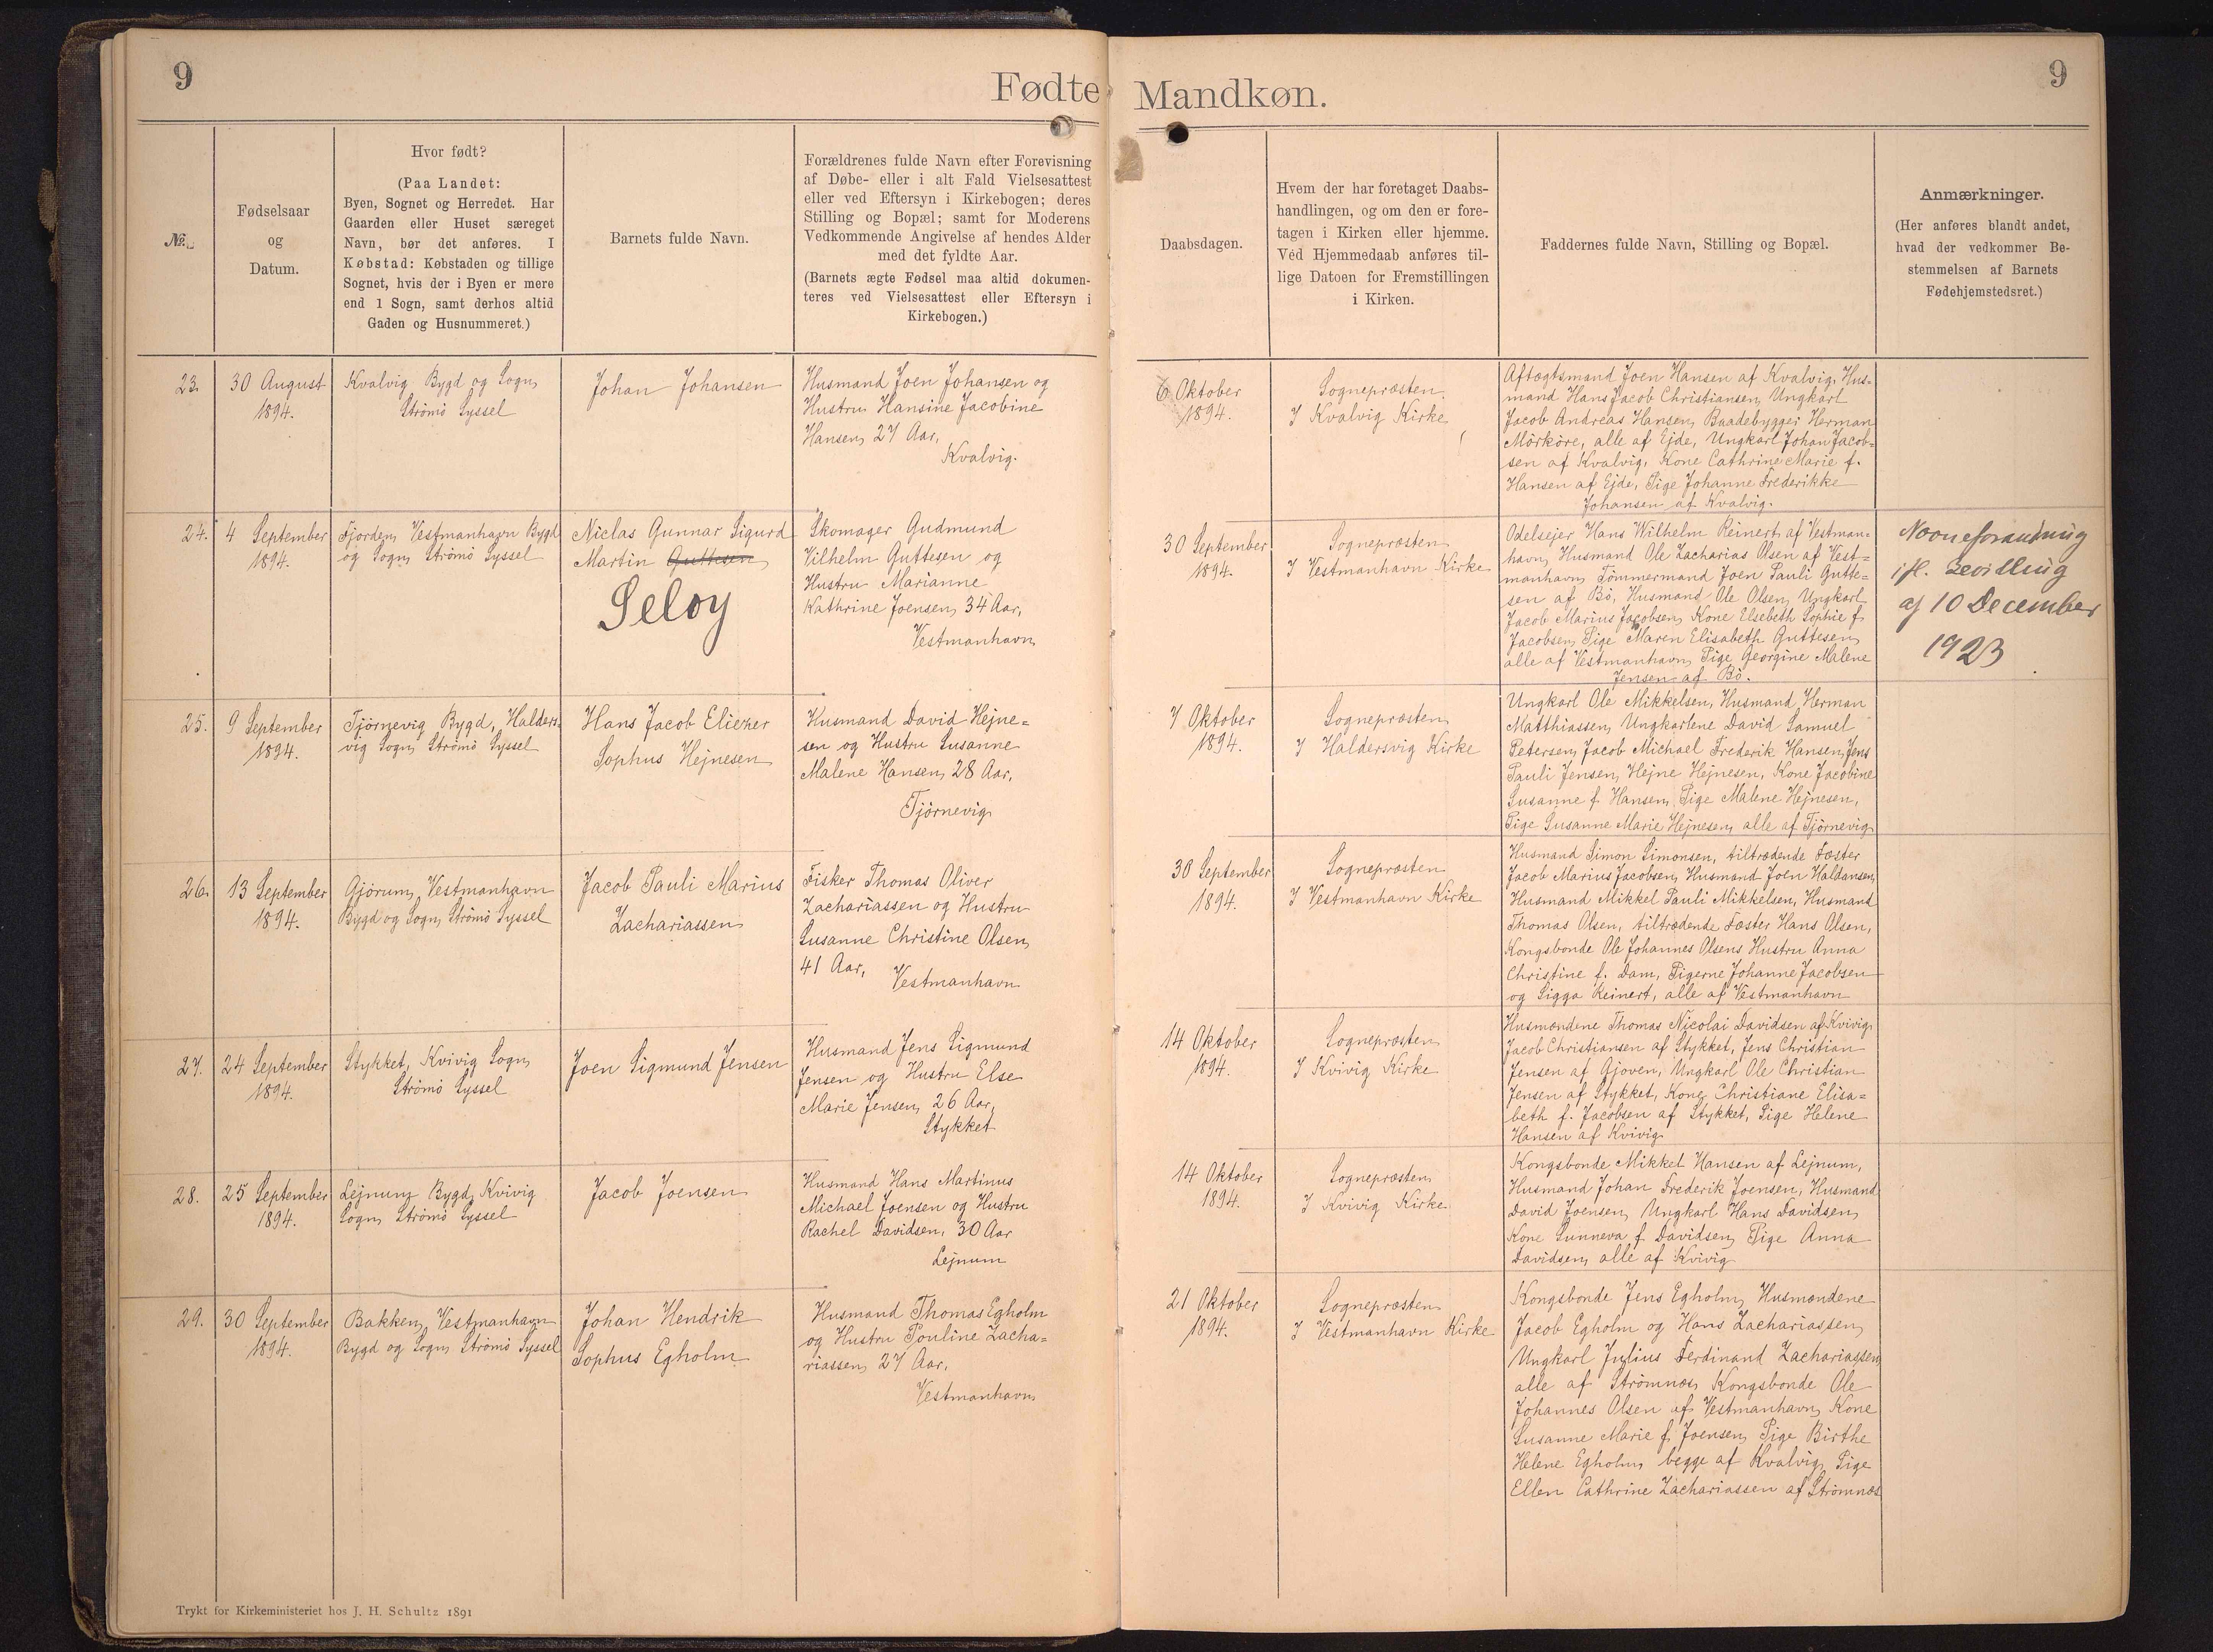 9
Fødte
Mandkøn.
9
№
Fødselsaar
og
Datum.
Hvor født?
(Paa Landet:
Byen, Sognet og Herredet. Har
Gaarden eller Huset særeget
Navn, bør det anføres. I
Købstad: Købstaden og tillige
Sognet, hvis der i Byen er mere
end 1 Sogn, samt derhos altid
Gaden og Husnummeret.)
Barnets fulde Navn.
Forældrenes fulde Navn efter Forevisning
af Døbe- eller i alt Fald Vielsesattest
eller ved Eftersyn i Kirkebogen; deres
Stilling og Bopæl; samt for Moderens
Vedkommende Angivelse af hendes Alder
med det fyldte Aar.
(Barnets ægte Fødsel maa altid dokumen-
teres ved Vielsesattest eller Eftersyn i
Kirkebogen.)
Daabsdagen.
Hvem der har foretaget Daabs-
handlingen, og om den er fore-
tagen i Kirken eller hjemme.
Ved Hjemmedaab anføres til-
lige Datoen for Fremstillingen
i Kirken.
Faddernes fulde Navn, Stilling og Bopæl.
Anmærkninger.
(Her anføres blandt andet,
hvad der vedkommer Be-
stemmelsen af Barnets
Fødehjemstedsret.)
23.
30 August
1894.
Kvalvig Bygd og Sogn,
Strömö Syssel
Johan Johansen
Husmand Joen Johansen og
Hustru Hansine Jacobine
Hansen, 27 Aar,
Kvalvig.
6 Oktober
1894.
Sognepræsten.
I Kvalvig Kirke
Aftægtsmand Joen Hansen af Kvalvig, Hus=
mand Hans Jacob Christiansen, Ungkarl
Jacob Andreas Hansen, Baadebygger Herman
Mörköre, alle af Ejde, Ungkarl Johan Jacob=
sen af Kvalvig, Kone Cathrine Marie f.
Hansen af Ejde, Pige Johanne Frederikke
Johansen af Kvalvig.
24.
4 September
1894.
Fjorden, Vestmanhavn Bygd
og Sogn, Strömö Syssel
Niclas Gunnar Sigurd
Martin Guttesen
Seloy
Skomager Gudmund
Vilhelm Guttesen og
Hustru Marianne
Kathrine Joensen, 34 Aar,
Vestmanhavn
30 September
1894.
Sognepræsten
I Vestmanhavn Kirke
Odelsejer Hans Wilhelm Reinert af Vestman=
havn, Husmand Ole Zacharias Olsen af Vest=
manhavn, Tömmermand Joen Pauli Gutte=
sen af Bö, Husmand Ole Olsen, Ungkarl
Jacob Marius Jacobsen, Kone Elsebeth Sophie f.
Jacobsen, Pige Maren Elisabeth Guttesen,
alle af Vestmanhavn, Pige Georgine Malene
Jensen af Bö.
Navneforandring
ifl. Bevilling
af 10 December
1923
25.
9 September
1894.
Tjörnevig Bygd, Halders=
vig Sogn, Strömö Syssel
Hans Jacob Eliezer
Sophus Hejnesen
Husmand David Hejne=
sen og Hustru Susanne
Malene Hansen, 28 Aar,
Tjörnevig
7 Oktober
1894.
Sognepræsten
I Haldersvig Kirke
Ungkarl Ole Mikkelsen, Husmand Herman
Matthiassen, Ungkarlene David Samuel
Petersen, Jacob Michael Frederik Hansen, Jens
Pauli Jensen, Hejne Hejnesen, Kone Jacobine
Susanne f. Hansen, Pige Malene Hejnesen,
Pige Susanne Marie Hejnesen, alle af Tjörnevig
26.
13 September
1894.
Gjörum, Vestmanhavn
Bygd og Sogn, Strömö Syssel
Jacob Pauli Marius
Zachariassen
Fisker Thomas Oliver
Zachariassen og Hustru
Susanne Christine Olsen,
41 Aar,
Vestmanhavn
30 September
1894.
Sognepræsten
I Vestmanhavn Kirke
Husmand Simon Simonsen, tiltrædende Fæster
Jacob Marius Jacobsen, Husmand Joen Haldansen,
Husmand Mikkel Pauli Mikkelsen, Husmand
Thomas Olsen, tiltrædende Fæster Hans Olsen,
Kongsbonde Ole Johannes Olsens Hustru Anna
Christine f. Dam, Pigerne Johanne Jacobsen
og Sigga Reinert, alle af Vestmanhavn
27.
24 September
1894.
Stykket, Kvivig Sogn,
Strömö Syssel
Joen Sigmund Jensen
Husmand Jens Sigmund
Jensen og Hustru Else
Marie Jensen, 26 Aar,
Stykket
14 Oktober
1894.
Sognepræsten
I Kvivig Kirke
Husmændene Thomas Nicolai Davidsen af Kvivig,
Jacob Christiansen af Stykket, Jens Christian
Jensen af Gjoven, Ungkarl Ole Christian
Jensen af Stykket, Kone Christiane Elisa=
beth f. Jacobsen af Stykket, Pige Helene
Hansen af Kvivig
28.
25 September
1894.
Lejnum Bygd, Kvivig
Sogn, Strömö Syssel
Jacob Joensen
Husmand Hans Martinus
Michael Joensen og Hustru
Rachel Davidsen, 30 Aar
Lejnum
14 Oktober
1894.
Sognepræsten
I Kvivig Kirke
Kongsbonde Mikkel Hansen af Lejnum,
Husmand Johan Frederik Joensen, Husmand
David Joensen, Ungkarl Hans Davidsen,
Kone Sunneva f. Davidsen, Pige Anna
Davidsen, alle af Kvivig
29.
30 September
1894.
Bakken, Vestmanhavn
Bygd og Sogn, Strömö Syssel
Johan Hendrik
Sophus Egholm
Husmand Thomas Egholm
og Hustru Pouline Zacha=
riassen, 27 Aar,
Vestmanhavn
21 Oktober
1894.
Sognepræsten
I Vestmanhavn Kirke
Kongsbonde Jens Egholm, Husmændene
Jacob Egholm og Hans Zachariassen,
Ungkarl Julius Ferdinand Zachariassen,
alle af Strömnæs, Kongsbonde Ole
Johannes Olsen af Vestmanhavn, Kone
Susanne Marie f. Joensen, Pige Birthe
Helene Egholm, begge af Kvalvig, Pige
Ellen Cathrine Zachariassen af Strömnæs
Trykt for Kirkeministeriet hos J. H. Schultz 1891